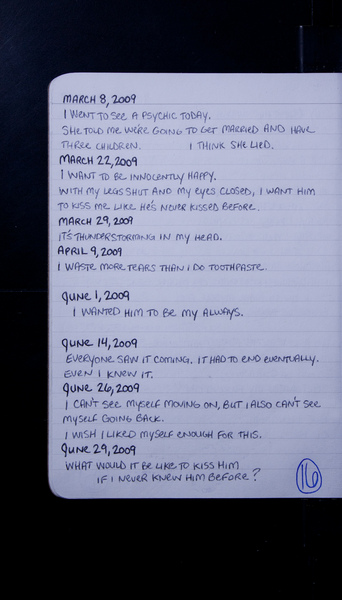 MARCH 8, 2009
I WENT TO SEE A PSYCHIC TODAY.
SHE TOLD ME WE'RE GOING TO GET MARRIED AND HAVE
THREE CHILDREN. I THINK SHE LIED.
MARCH 22, 2009
I WANT TO BE INNOCENTLY HAPPY.
WITH MY LEGS SHUT AND MY EYES CLOSED, I WANT HIM
TO KISS ME LIKE HE'S NEVER KISSED BEFORE.
MARCH 29, 2009
IT'S THUNDERSTORMING IN MY HEAD.
APRIL 9, 2009
I WASTE MORE TEARS THAN I DO TOOTHPASTE.
JUNE 1, 2009
I WANTED HIM TO BE MY ALWAYS.
JUNE 14, 2009
EVERYONE SAW IT COMING. IT HAD TO END EVENTUALLY.
EVEN I KNEW IT.
JUNE 26, 2009
I CAN'T SEE MYSELF MOVING ON, BUT I ALSO CAN'T SEE
MYSELF GOING BACK.
I WISH I LIKED MYSELF ENOUGH FOR THIS.
JUNE 29, 2009
WHAT WOULD IT BE LIKE TO KISS HIM
IF I NEVER KNEW HIM BEFORE?
16